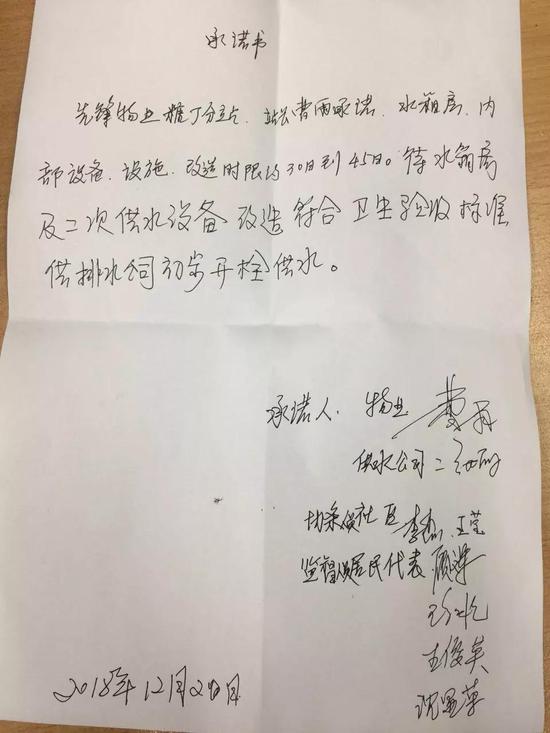 承诺书
先锋物业糖丁分立点、站长曹雨承诺、水箱房、内
部设备、设施、改造时限约30日到45日。待水箱房
及二次供水设备改造符合卫生验收标准
供排水公司初步开栓供水。
承诺人: 物业 曹雨
供水公司:
协调员社区 李 王莹
监督员居民代表 顾萍
王
王俊英
沈显萍
2018年12月20日